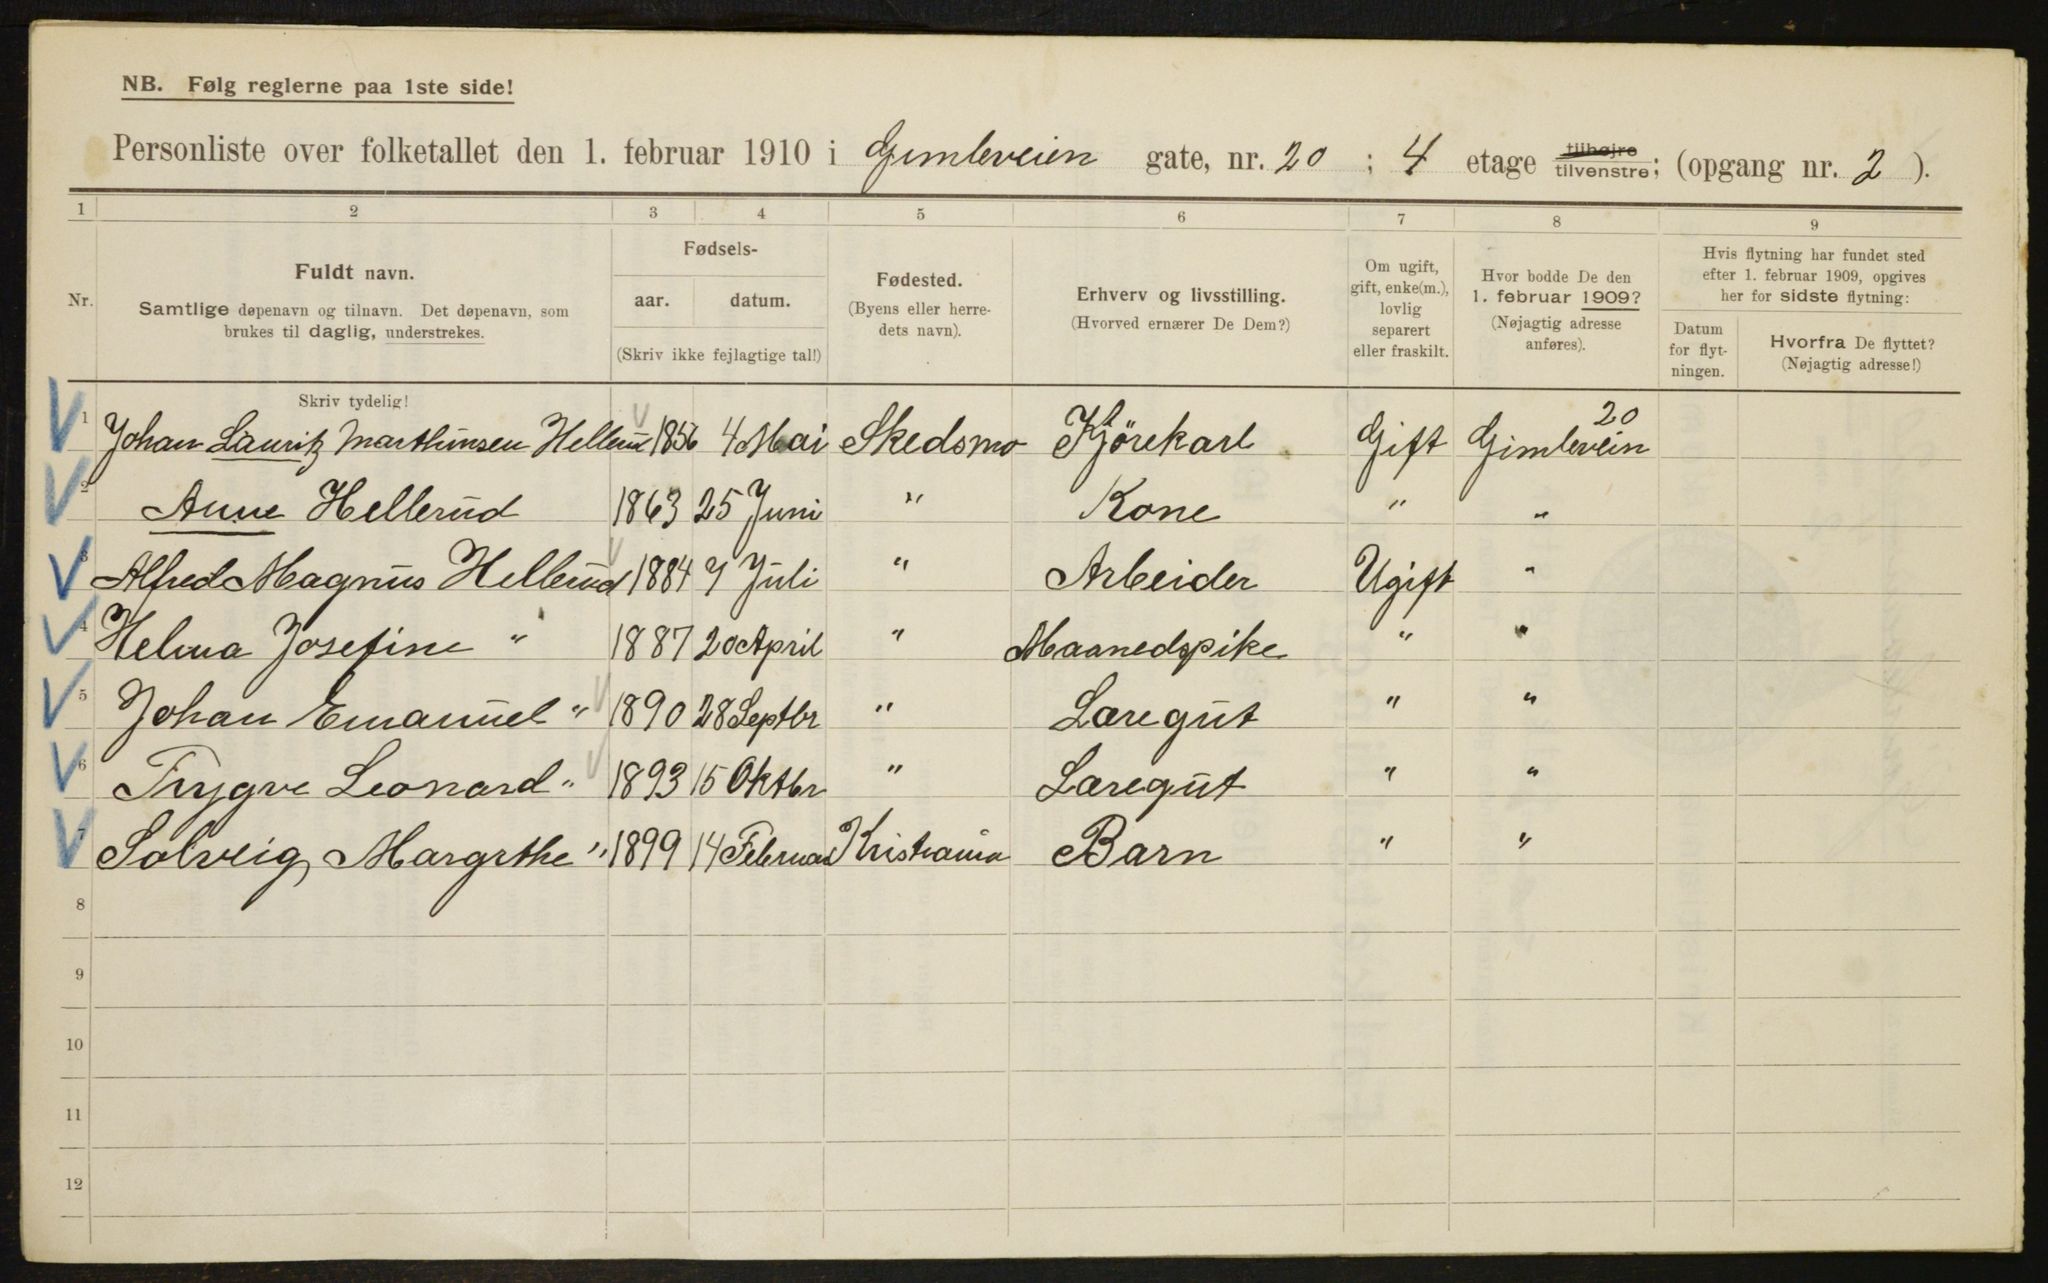 NB. Følg reglerne paa 1ste side!
Personliste over folketallet den 1. februar 1910 i Gimleveien gate, nr. 20 ; 4 etage tilhøjre tilvenstre; (opgang nr. 2 ).
1 2 3 4 5 6 7 8 9
Nr.
Fuldt navn.
Samtlige døpenavn og tilnavn. Det døpenavn, som
brukes til daglig, understrekes.
Fødsels-
aar. datum.
(Skriv ikke fejlagtige tal!)
Fødested.
(Byens eller herre-
dets navn).
Erhverv og livsstilling.
(Hvorved ernærer De Dem?)
Om ugift,
gift, enke(m.),
lovlig
separert
eller fraskilt.
Hvor bodde De den
1. februar 1909?
(Nøjagtig adresse
anføres).
Hvis flytning har fundet sted
efter 1. februar 1909, opgives
her for sidste flytning:
Datum
for flyt-
ningen.
Hvorfra De flyttet?
(Nøjagtig adresse!)
Skriv tydelig!
1 Johan Lauritz Marthinsen Hellerud 1856 4 Mai Skedsmo Kjörekarl Gift Gimleveien 20
2 Anne Hellerud 1863 25 Juni " Kone " "
3 Alfred Magnus Hellerud 1884 7 Juli " Arbeider Ugift "
4 Helma Josefine " 1887 20 April " Maanedspike " "
5 Johan Emanuel " 1890 28 Septbr " Læregut " "
6 Trygve Leonard " 1893 15 Oktbr " Læregut " "
7 Solveig Margrthe " 1899 14 Februar Kristiania Barn " "
8
9
10
11
12